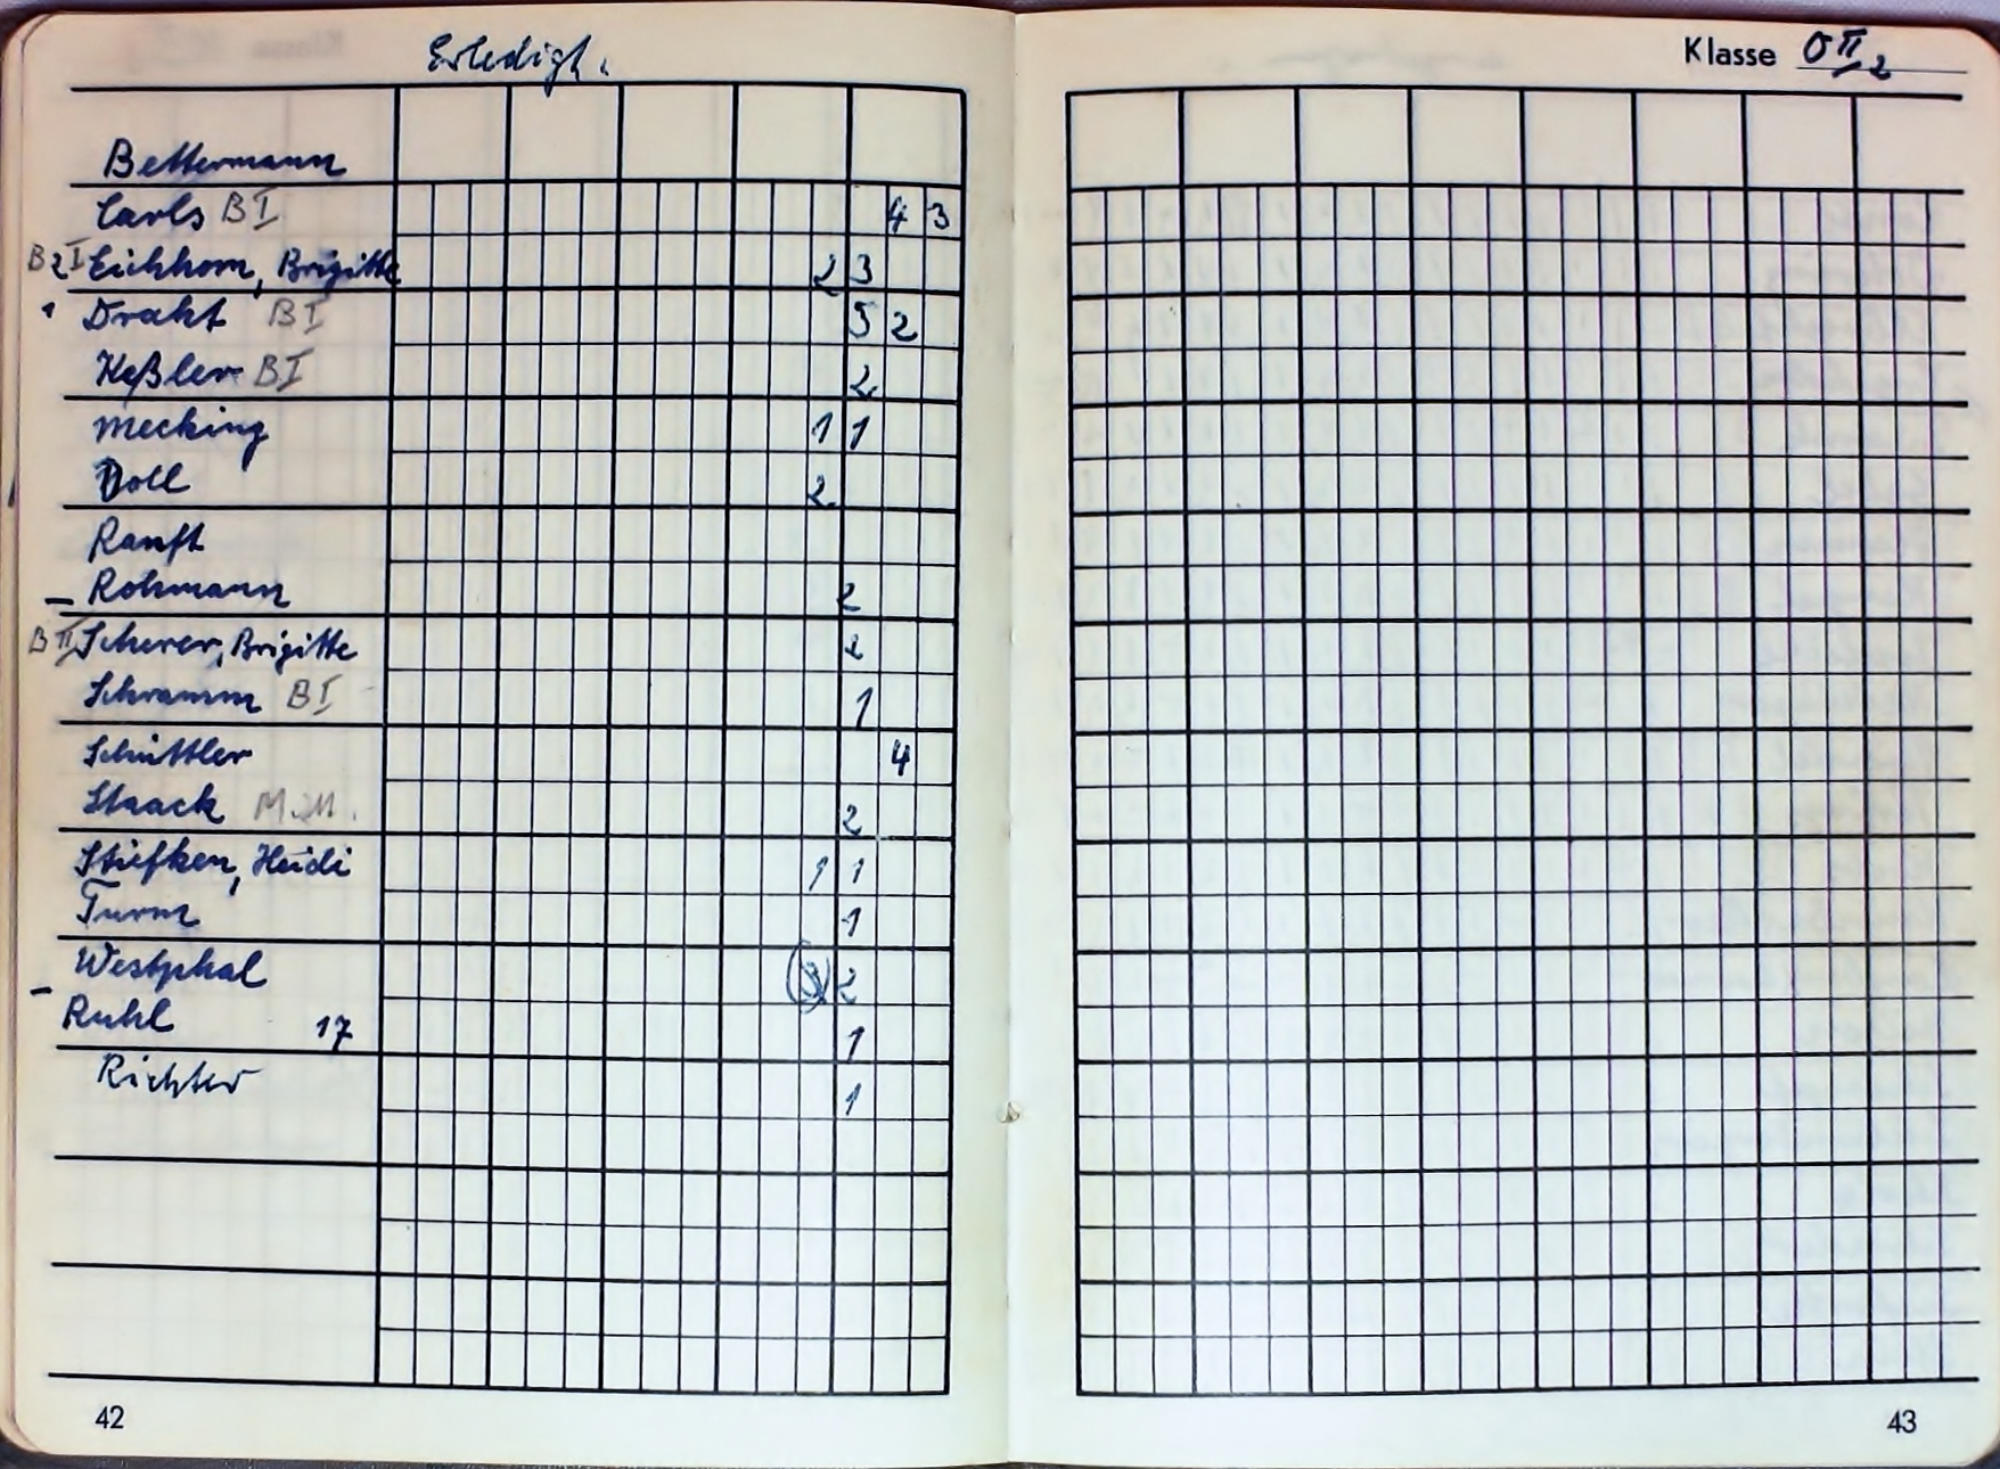 Erledigt.
Klasse OII/2
Bettermann
Carls BI 4 3
B2I Eichhorn, Brigitte 2 3
1 Draht BI 5 2
Keßler BI 2
Mecking 1 1
Doll 2
Ranft
– Rohmann 2
BII Scherer, Brigitte 2
Schramm BI 1
Schüttler 4
Staack M.M. 2
Stiefken, Heidi 1 1
Turm 1
Westphal (3) 2
– Ruhl 17 1
Richter 1
42
43